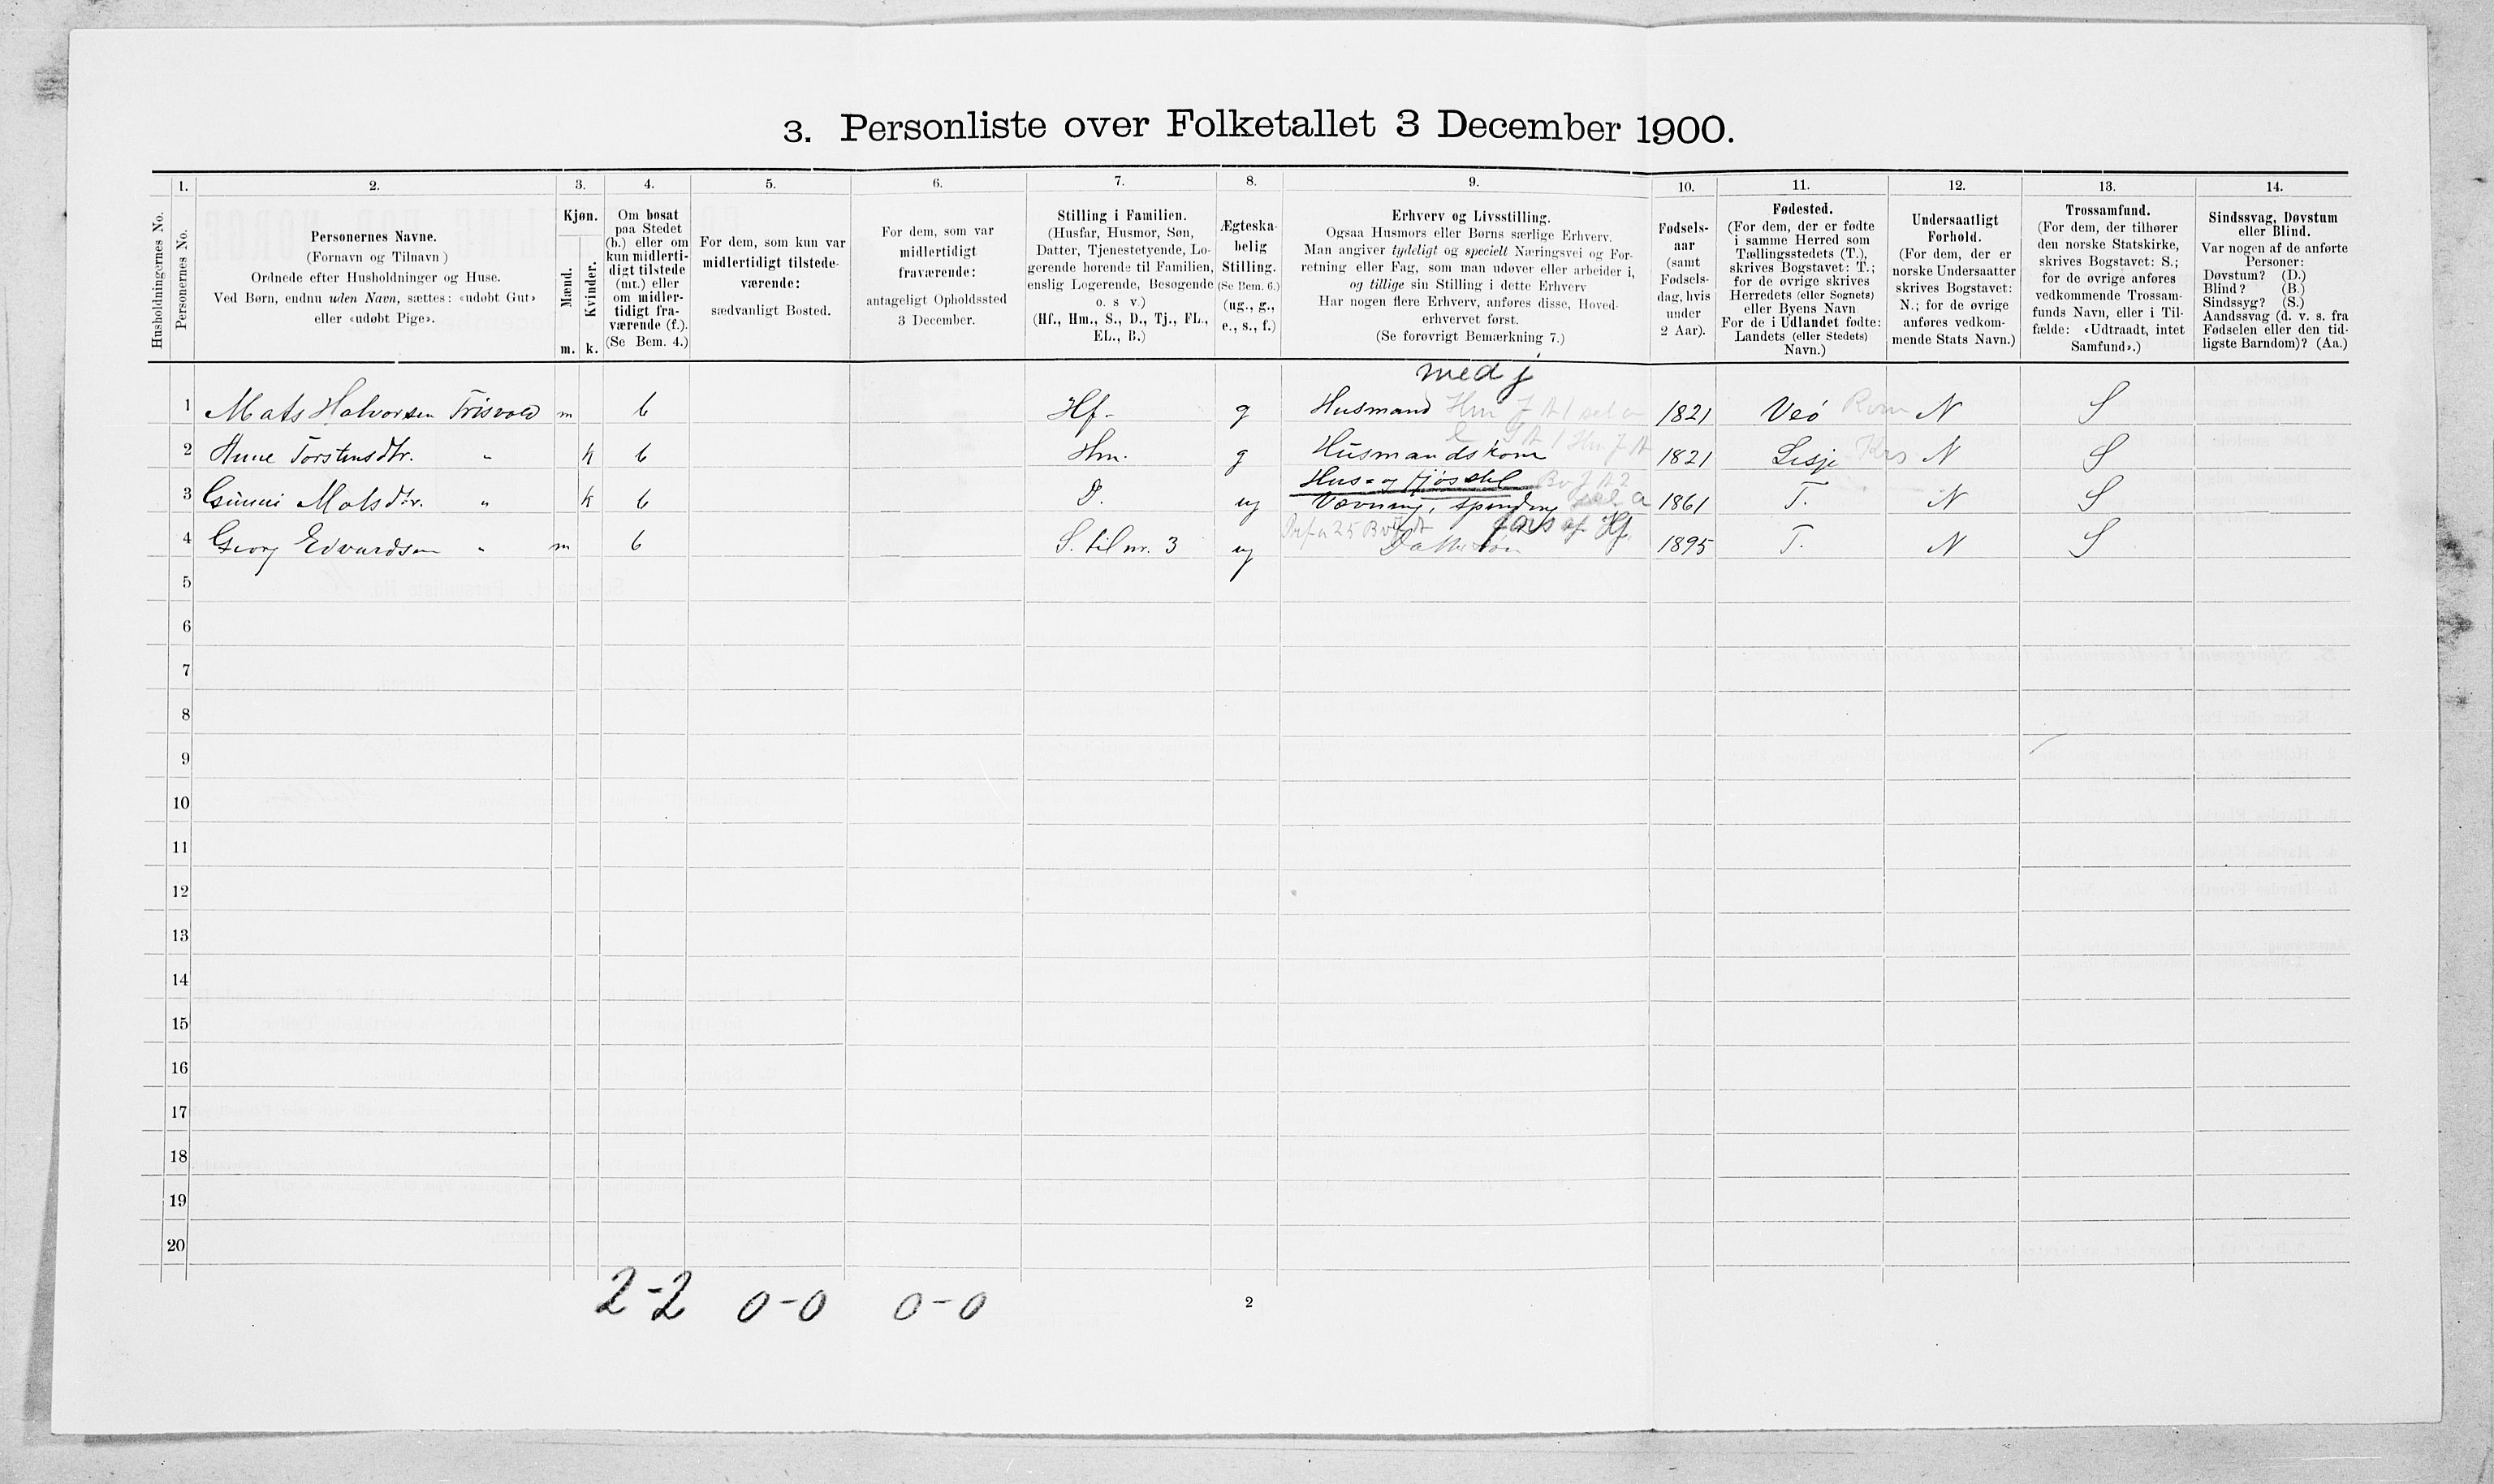 3. Personliste over Folketallet 3 December 1900.
1. 2. 3. 4. 5. 6. 7. 8. 9. 10. 11. 12. 13. 14.
Husholdningernes No.
Personernes No.
Personernes Navne.
(Fornavn og Tilnavn)
Ordnede efter Husholdninger og Huse.
Ved Børn, endnu uden Navn, sættes: «udøbt Gut»
eller «udøbt Pige».
Kjøn.
Mænd.
Kvinder.
m. k.
Om bosat
paa Stedet
(b.) eller om
kun midlerti-
digt tilstede
(mt.) eller
om midler-
tidigt fra-
værende (f.).
(Se Bem. 4.)
For dem, som kun var
midlertidigt tilstede-
værende:
sædvanligt Bosted.
For dem, som var
midlertidigt
fraværende:
antageligt Opholdssted
3 December.
Stilling i Familien.
(Husfar, Husmor, Søn,
Datter, Tjenestetyende, Lo-
gerende hørende til Familien,
enslig Logerende, Besøgende
o. s v.)
(Hf., Hm., S., D., Tj., FL.,
EL., B.)
Ægteska-
belig
Stilling.
(Se Bem. 6.)
(ug., g.,
e., s., f.)
Erhverv og Livsstilling.
Ogsaa Husmors eller Børns særlige Erhverv.
Man angiver tydeligt og specielt Næringsvei og For-
retning eller Fag, som man udøver eller arbeider i,
og tillige sin Stilling i dette Erhverv
Har nogen flere Erhverv, anføres disse, Hoved-
erhvervet først.
(Se forøvrigt Bemærkning 7.)
Fødsels-
aar
(samt
Fødsels-
dag, hvis
under
2 Aar).
Fødested.
(For dem, der er fødte
i samme Herred som
Tællingsstedets (T.),
skrives Bogstavet: T.;
for de øvrige skrives
Herredets (eller Sognets)
eller Byens Navn
For de i Udlandet fødte:
Landets (eller Stedets)
Navn.)
Undersaatligt
Forhold.
(For dem, der er
norske Undersaatter
skrives Bogstavet:
N.; for de øvrige
anføres vedkom-
mende Stats Navn.)
Trossamfund.
(For dem, der tilhører
den norske Statskirke,
skrives Bogstavet: S.;
for de øvrige anføres
vedkommende Trossam-
funds Navn, eller i Til-
fælde: «Udtraadt, intet
Samfund».)
Sindssvag, Døvstum
eller Blind.
Var nogen af de anførte
Personer:
Døvstum? (D.)
Blind? (B.)
Sindssyg? (S.)
Aandssvag (d. v. s. fra
Fødselen eller den tid-
ligste Barndom)? (Aa.)
med j
1 Mats Halvorsen m b Hf. g Husmand 1821 Veø N S
2 Torstensdtr. " k b Hm. g Husmandskone 1821 Lesje N S
Hus- og fjøsstel
3 Matsdtr. " k b D. ug Vævning, spinding 1861 T. N S
fors af Hf.
4 Georg Edvardsen " m b S. til nr. 3 ug Dattersøn 1895 T. N S
5
6
7
8
9
10
11
12
13
14
15
16
17
18
19
20
2-2 0-0 0-0
2